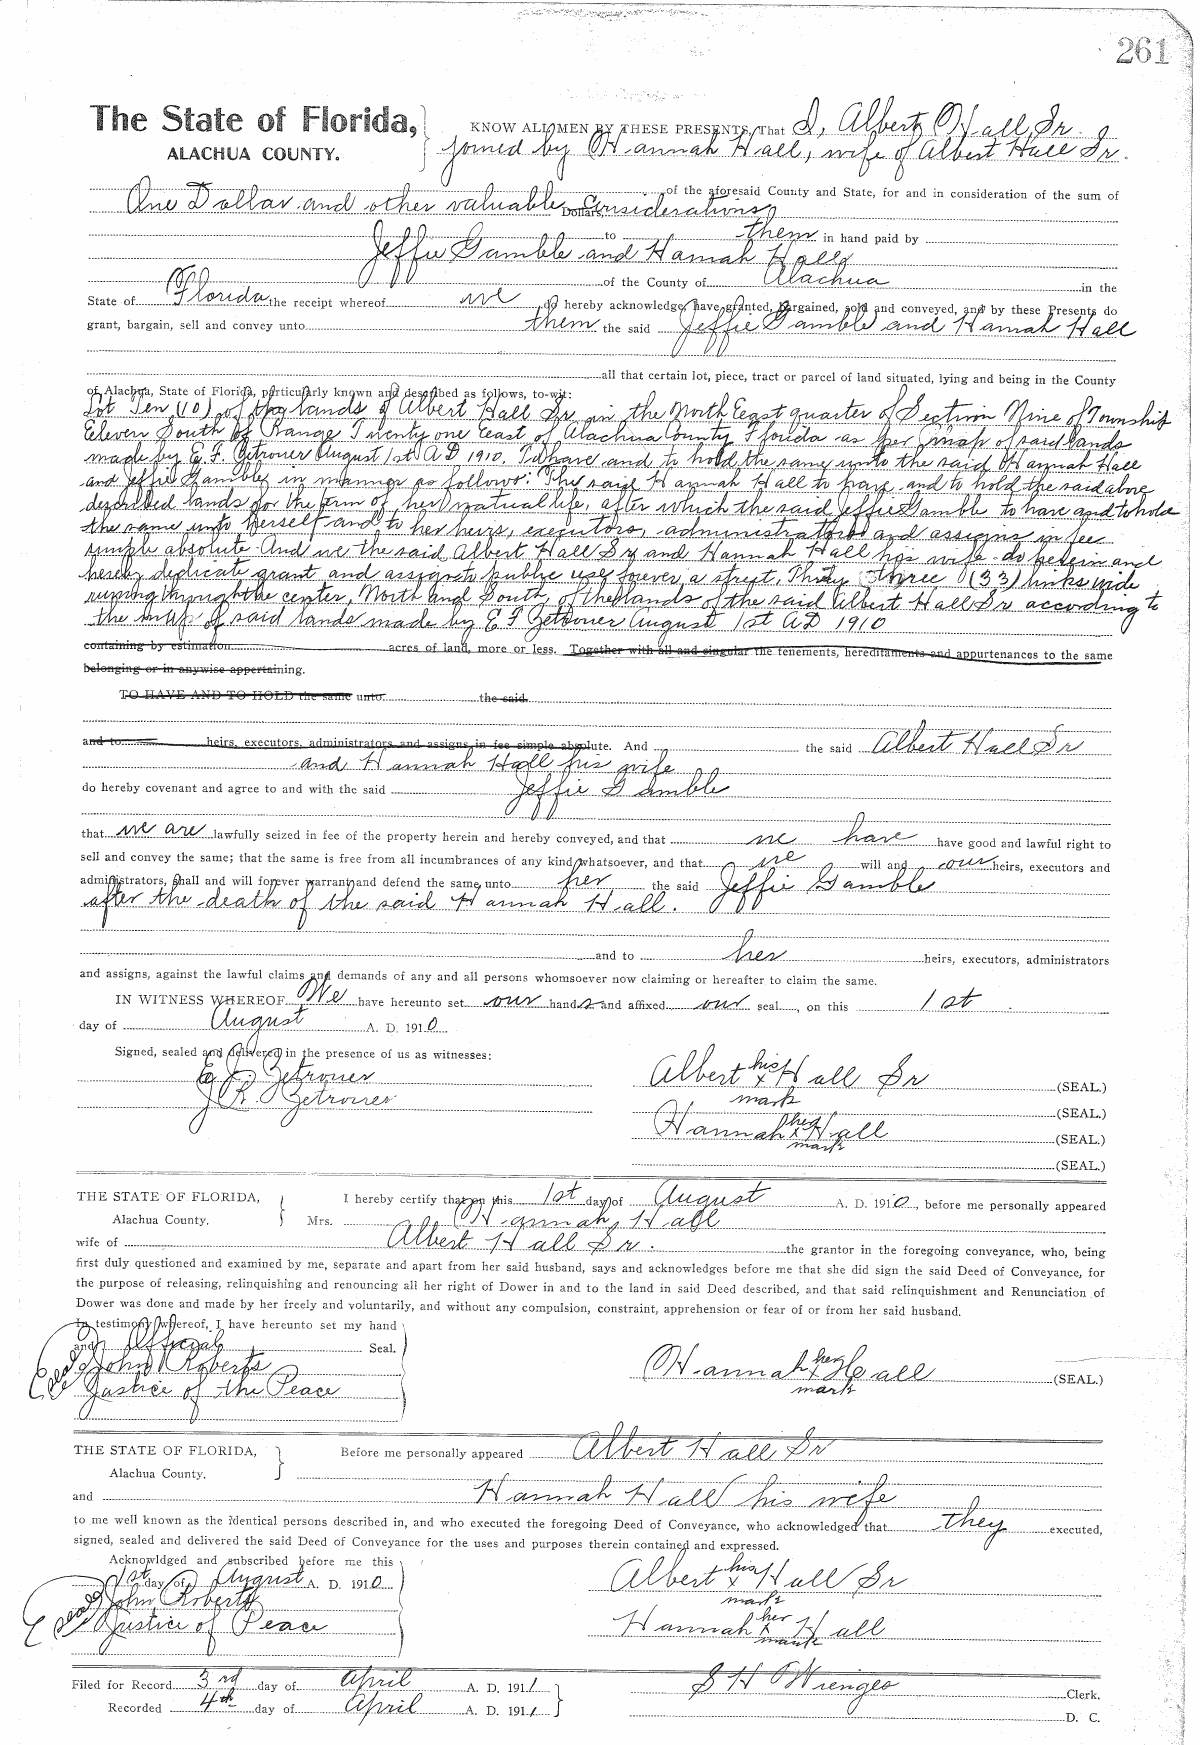 261
The State of Florida, KNOW ALL MEN BY THESE PRESENTS, That I, Albert Hall, Sr.
ALACHUA COUNTY. joined by Hannah Hall, wife of Albert Hall Sr.
of the aforesaid County and State, for and in consideration of the sum of
One Dollar and other valuable Dollars, Considerations
to them in hand paid by
Jeffie Gamble and Hannah Hall
of the County of Alachua in the
State of Florida the receipt whereof we do hereby acknowledge, have granted, bargained, sold and conveyed, and by these Presents do
grant, bargain, sell and convey unto them the said Jeffie Gamble and Hannah Hall
all that certain lot, piece, tract or parcel of land situated, lying and being in the County
of Alachua, State of Florida, particularly known and described as follows, to-wit:
Lot Ten (10) of the lands of Albert Hall Sr in the North East quarter of Section Nine of Township
Eleven South of Range Twenty one East of Alachua County Florida as per map of said lands
made by E. F. Zetrouer August 1st A D 1910. To have and to hold the same unto the said Hannah Hall
and Jeffie Gamble in manner as follows: The said Hannah Hall to have and to hold the said above
described lands for the term of her natural life, after which the said Jeffie Gamble to have and to hold
the same unto herself and to her heirs, executors, administrators and assigns in fee
simple absolute And we the said Albert Hall Sr and Hannah Hall his wife do herein and
hereby deplicate grant and assign to public use forever a street, Thirty Three (33) links wide
runing through the center, North and South, of the lands of the said Albert Hall Sr according to
the map of said lands made by E F Zetrouer August 1st A D 1910
containing by estimation acres of land, more or less. Together with all and singular the tenements, hereditaments and appurtenances to the same
belonging or in anywise appertaining.
TO HAVE AND TO HOLD the same unto the said
and to heirs, executors, administrators and assigns in fee simple absolute. And the said Albert Hall Sr
and Hannah Hall his wife
do hereby covenant and agree to and with the said Jeffie Gamble
that we are lawfully seized in fee of the property herein and hereby conveyed, and that we have have good and lawful right to
sell and convey the same; that the same is free from all incumbrances of any kind whatsoever, and that we will and our heirs, executors and
administrators, shall and will forever warrant and defend the same unto her the said Jeffie Gamble
after the death of the said Hannah Hall.
and to her heirs, executors, administrators
and assigns, against the lawful claims and demands of any and all persons whomsoever now claiming or hereafter to claim the same.
IN WITNESS WHEREOF We have hereunto set our hands and affixed our seal, on this 1st
day of August A. D. 1910
Signed, sealed and delivered in the presence of us as witnesses:
E F Zetrouer Albert his x mark Hall Sr (SEAL.)
J R Zetrouer (SEAL.)
Hannah her x mark Hall (SEAL.)
(SEAL.)
THE STATE OF FLORIDA, I hereby certify that on this 1st day of August A. D. 1910, before me personally appeared
Alachua County. Mrs. Hannah Hall
wife of Albert Hall Sr. the grantor in the foregoing conveyance, who, being
first duly questioned and examined by me, separate and apart from her said husband, says and acknowledges before me that she did sign the said Deed of Conveyance, for
the purpose of releasing, relinquishing and renouncing all her right of Dower in and to the land in said Deed described, and that said relinquishment and Renunciation of
Dower was done and made by her freely and voluntarily, and without any compulsion, constraint, apprehension or fear of or from her said husband.
In testimony whereof, I have hereunto set my hand
and Official Seal.
(Seal) John Roberts Hannah her x mark Hall (SEAL.)
Justice of the Peace
THE STATE OF FLORIDA, Before me personally appeared Albert Hall Sr
Alachua County.
and Hannah Hall his wife
to me well known as the identical persons described in, and who executed the foregoing Deed of Conveyance, who acknowledged that they executed,
signed, sealed and delivered the said Deed of Conveyance for the uses and purposes therein contained and expressed.
Acknowldged and subscribed before me this
1st day of August A. D. 1910 Albert his x mark Hall Sr
(Seal) John Roberts
Justice of Peace Hannah her x mark Hall
Filed for Record 3rd day of April A. D. 1911 S H Wienges Clerk.
Recorded 4th day of April A. D. 1911 D. C.